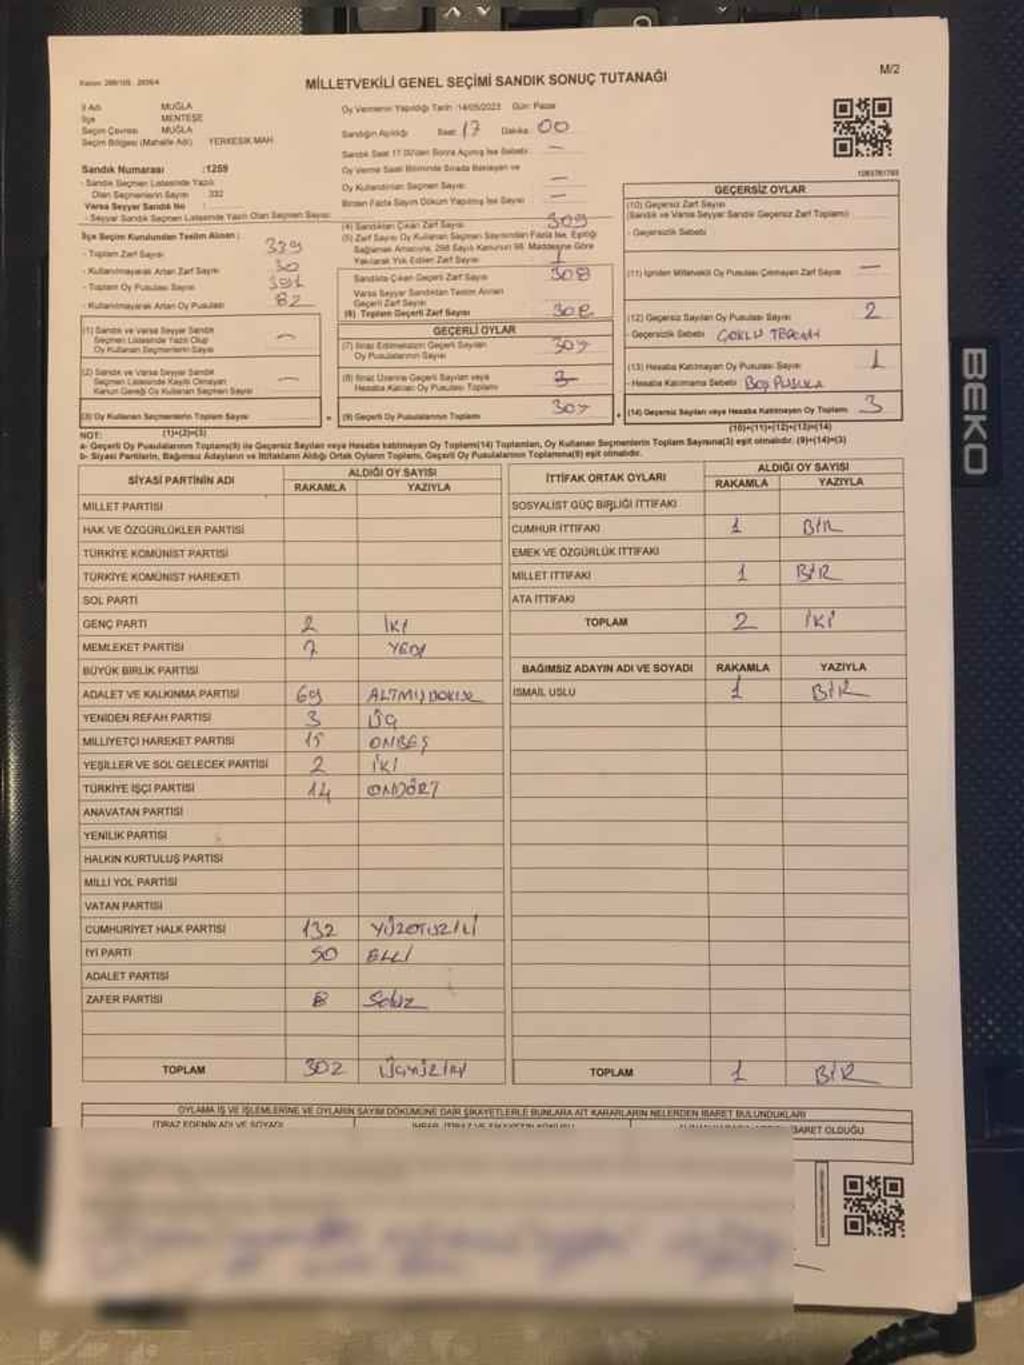 MİLLETVEKİLİ GENEL SEÇİMİ SANDIK SONUÇ TUTANAĞI
M/2
İl Adı MUĞLA
İlçe MENTEŞE
Seçim Çevresi MUĞLA
Seçim Bölgesi (Mahalle Adı) YERKESİK MAH
Sandık Numarası :1259
- Sandık Seçmen Listesinde Yazılı
Olan Seçmenlerin Sayısı : 332
Varsa Seyyar Sandık No :
- Seyyar Sandık Seçmen Listesinde Yazılı Olan Seçmen Sayısı:
Oy Vermenin Yapıldığı Tarih :14/05/2023 Gün: Pazar
Sandığın Açıldığı Saat: 17 Dakika: 00
Sandık Saat 17.00'den Sonra Açılmış İse Sebebi: —
Oy Verme Saati Bitiminde Sırada Bekleyen ve
Oy Kullandırılan Seçmen Sayısı: —
Birden Fazla Sayım Döküm Yapılmış İse Sayısı: —
İlçe Seçim Kurulundan Teslim Alınan :
- Toplam Zarf Sayısı
- Kullanılmayarak Artan Zarf Sayısı 30
- Toplam Oy Pusulası Sayısı
- Kullanılmayarak Artan Oy Pusulası 82
(4) Sandıktan Çıkan Zarf Sayısı: 309
(5) Zarf Sayısı Oy Kullanan Seçmen Sayısından Fazla İse, Eşitliği
Sağlamak Amacıyla, 298 Sayılı Kanunun 98. Maddesine Göre
Yakılarak Yok Edilen Zarf Sayısı: 1
Sandıkta Çıkan Geçerli Zarf Sayısı 308
Varsa Seyyar Sandıktan Teslim Alınan
Geçerli Zarf Sayısı
(6) Toplam Geçerli Zarf Sayısı 308
GEÇERLİ OYLAR
(7) İtiraz Edilmeksizin Geçerli Sayılan
Oy Pusulalarının Sayısı 307
(8) İtiraz Üzerine Geçerli Sayılan veya
Hesaba Katılan Oy Pusulası Toplamı
(9) Geçerli Oy Pusulalarının Toplamı 307
GEÇERSİZ OYLAR
(10) Geçersiz Zarf Sayısı
(Sandık ve Varsa Seyyar Sandık Geçersiz Zarf Toplamı)
- Geçersizlik Sebebi
(11) İçinden Milletvekili Oy Pusulası Çıkmayan Zarf Sayısı —
(12) Geçersiz Sayılan Oy Pusulası Sayısı 2
- Geçersizlik Sebebi ÇOKLU TERCİH
(13) Hesaba Katılmayan Oy Pusulası Sayısı 1
- Hesaba Katılmama Sebebi BOŞ PUSULA
(14) Geçersiz Sayılan veya Hesaba Katılmayan Oy Toplamı 3
(10)+(11)+(12)+(13)=(14)
(1) Sandık ve Varsa Seyyar Sandık
Seçmen Listesinde Yazılı Olup
Oy Kullanan Seçmenlerin Sayısı —
(2) Sandık ve Varsa Seyyar Sandık
Seçmen Listesinde Kayıtlı Olmayan
Kanun Gereği Oy Kullanan Seçmen Sayısı —
(3) Oy Kullanan Seçmenlerin Toplam Sayısı
(1)+(2)=(3)
NOT:
a- Geçerli Oy Pusulalarının Toplamı(9) ile Geçersiz Sayılan veya Hesaba katılmayan Oy Toplamı(14) Toplamları, Oy Kullanan Seçmenlerin Toplam Sayısına(3) eşit olmalıdır. (9)+(14)=(3)
b- Siyasi Partilerin, Bağımsız Adayların ve İttifakların Aldığı Ortak Oyların Toplamı, Geçerli Oy Pusulalarının Toplamına(9) eşit olmalıdır.
SİYASİ PARTİNİN ADI ALDIĞI OY SAYISI
RAKAMLA YAZIYLA
MİLLET PARTİSİ
HAK VE ÖZGÜRLÜKLER PARTİSİ
TÜRKİYE KOMÜNİST PARTİSİ
TÜRKİYE KOMÜNİST HAREKETİ
SOL PARTİ
GENÇ PARTİ 2 İKİ
MEMLEKET PARTİSİ 7 YEDİ
BÜYÜK BİRLİK PARTİSİ
ADALET VE KALKINMA PARTİSİ 69 ALTMIŞDOKUZ
YENİDEN REFAH PARTİSİ 3 ÜÇ
MİLLİYETÇİ HAREKET PARTİSİ 15 ONBEŞ
YEŞİLLER VE SOL GELECEK PARTİSİ 2 İKİ
TÜRKİYE İŞÇİ PARTİSİ 14 ONDÖRT
ANAVATAN PARTİSİ
YENİLİK PARTİSİ
HALKIN KURTULUŞ PARTİSİ
MİLLİ YOL PARTİSİ
VATAN PARTİSİ
CUMHURİYET HALK PARTİSİ 132 YÜZOTUZİKİ
İYİ PARTİ 50 ELLİ
ADALET PARTİSİ
ZAFER PARTİSİ 8 Sekiz
TOPLAM 302 ÜÇYÜZİKİ
İTTİFAK ORTAK OYLARI ALDIĞI OY SAYISI
RAKAMLA YAZIYLA
SOSYALİST GÜÇ BİRLİĞİ İTTİFAKI
CUMHUR İTTİFAKI 1 BİR
EMEK VE ÖZGÜRLÜK İTTİFAKI
MİLLET İTTİFAKI 1 BİR
ATA İTTİFAKI
TOPLAM 2 İKİ
BAĞIMSIZ ADAYIN ADI VE SOYADI RAKAMLA YAZIYLA
İSMAİL USLU 1 BİR
TOPLAM 1 BİR
OYLAMA İŞ VE İŞLEMLERİNE VE OYLARIN SAYIM DÖKÜMÜNE DAİR ŞİKAYETLERLE BUNLARA AİT KARARLARIN NELERDEN İBARET BULUNDUKLARI
İTİRAZ EDENİN ADI VE SOYADI
BARET OLDUĞU
BEKO